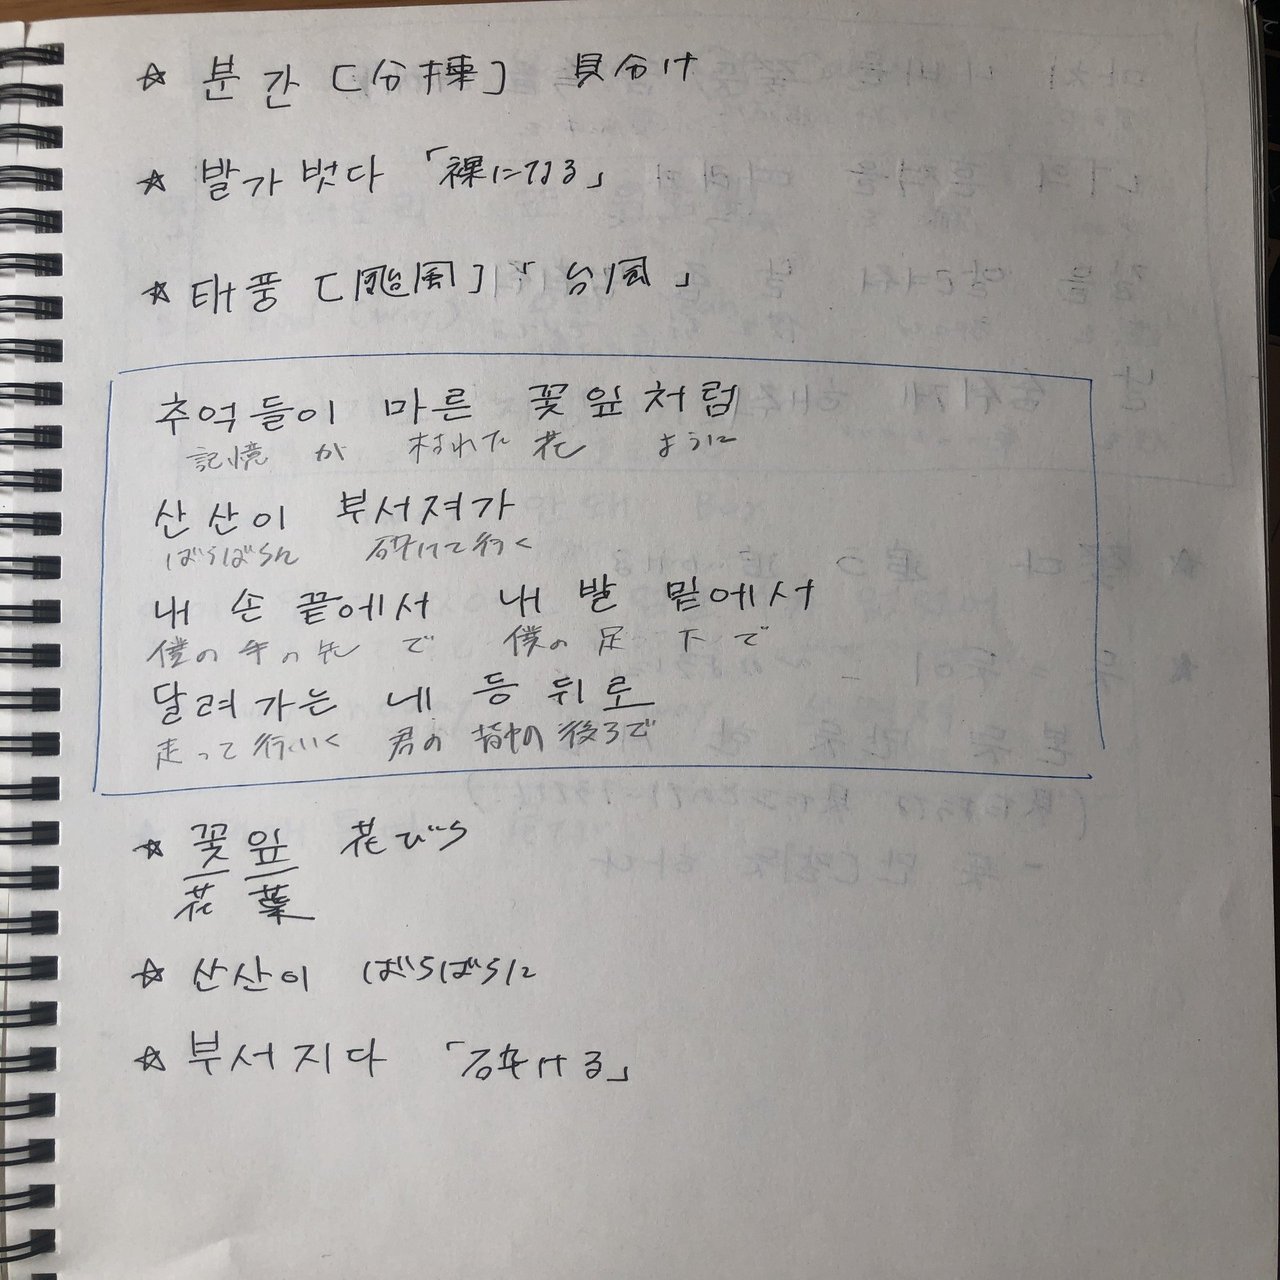 ☆ 분간 [分揀] 見分け
☆ 발가벗다 「裸になる」
☆ 태풍 [颱風] 「台風」
추억들이 마른 꽃잎처럼
記憶 が 枯れた 花 ように
산산이 부서져가
ばらばらに 砕けて行く
내 손 끝에서 내 발 밑에서
僕の 手の先 で 僕の 足 下 で
달려가는 네 등 뒤로
走って 行く 君の 背中の 後ろで
☆ 꽃잎 花びら
花 葉
☆ 산산이 ばらばらに
☆ 부서지다 「砕ける」